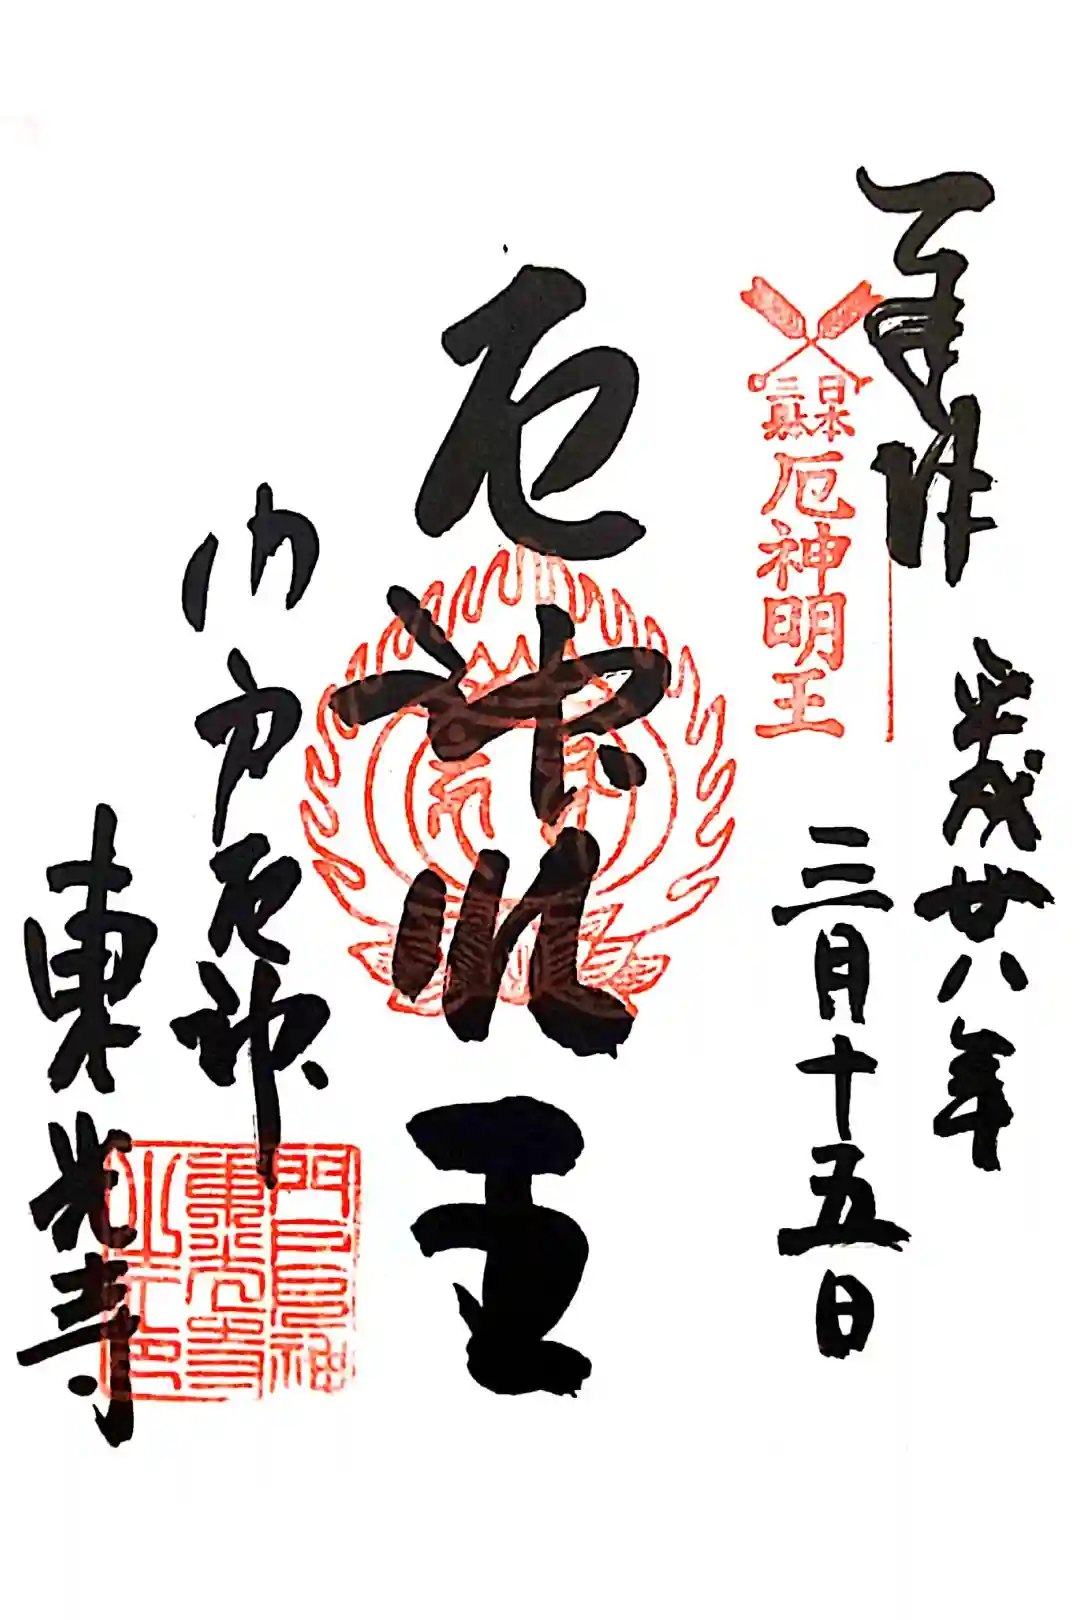 奉拝
平成廿八年
三月十五日
日本
三躰
厄神明王
厄神明王
門戸厄神
東光寺
門戸厄神
東光寺